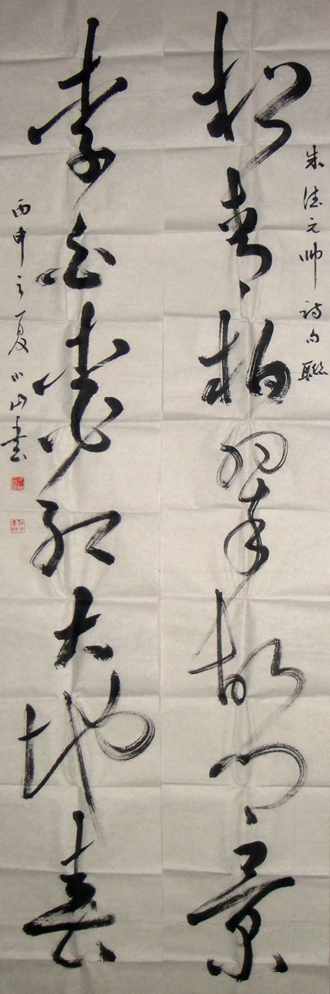 朱德元帅诗句联
松青柏翠都门景
李白桃红大地春
丙申之夏 山书